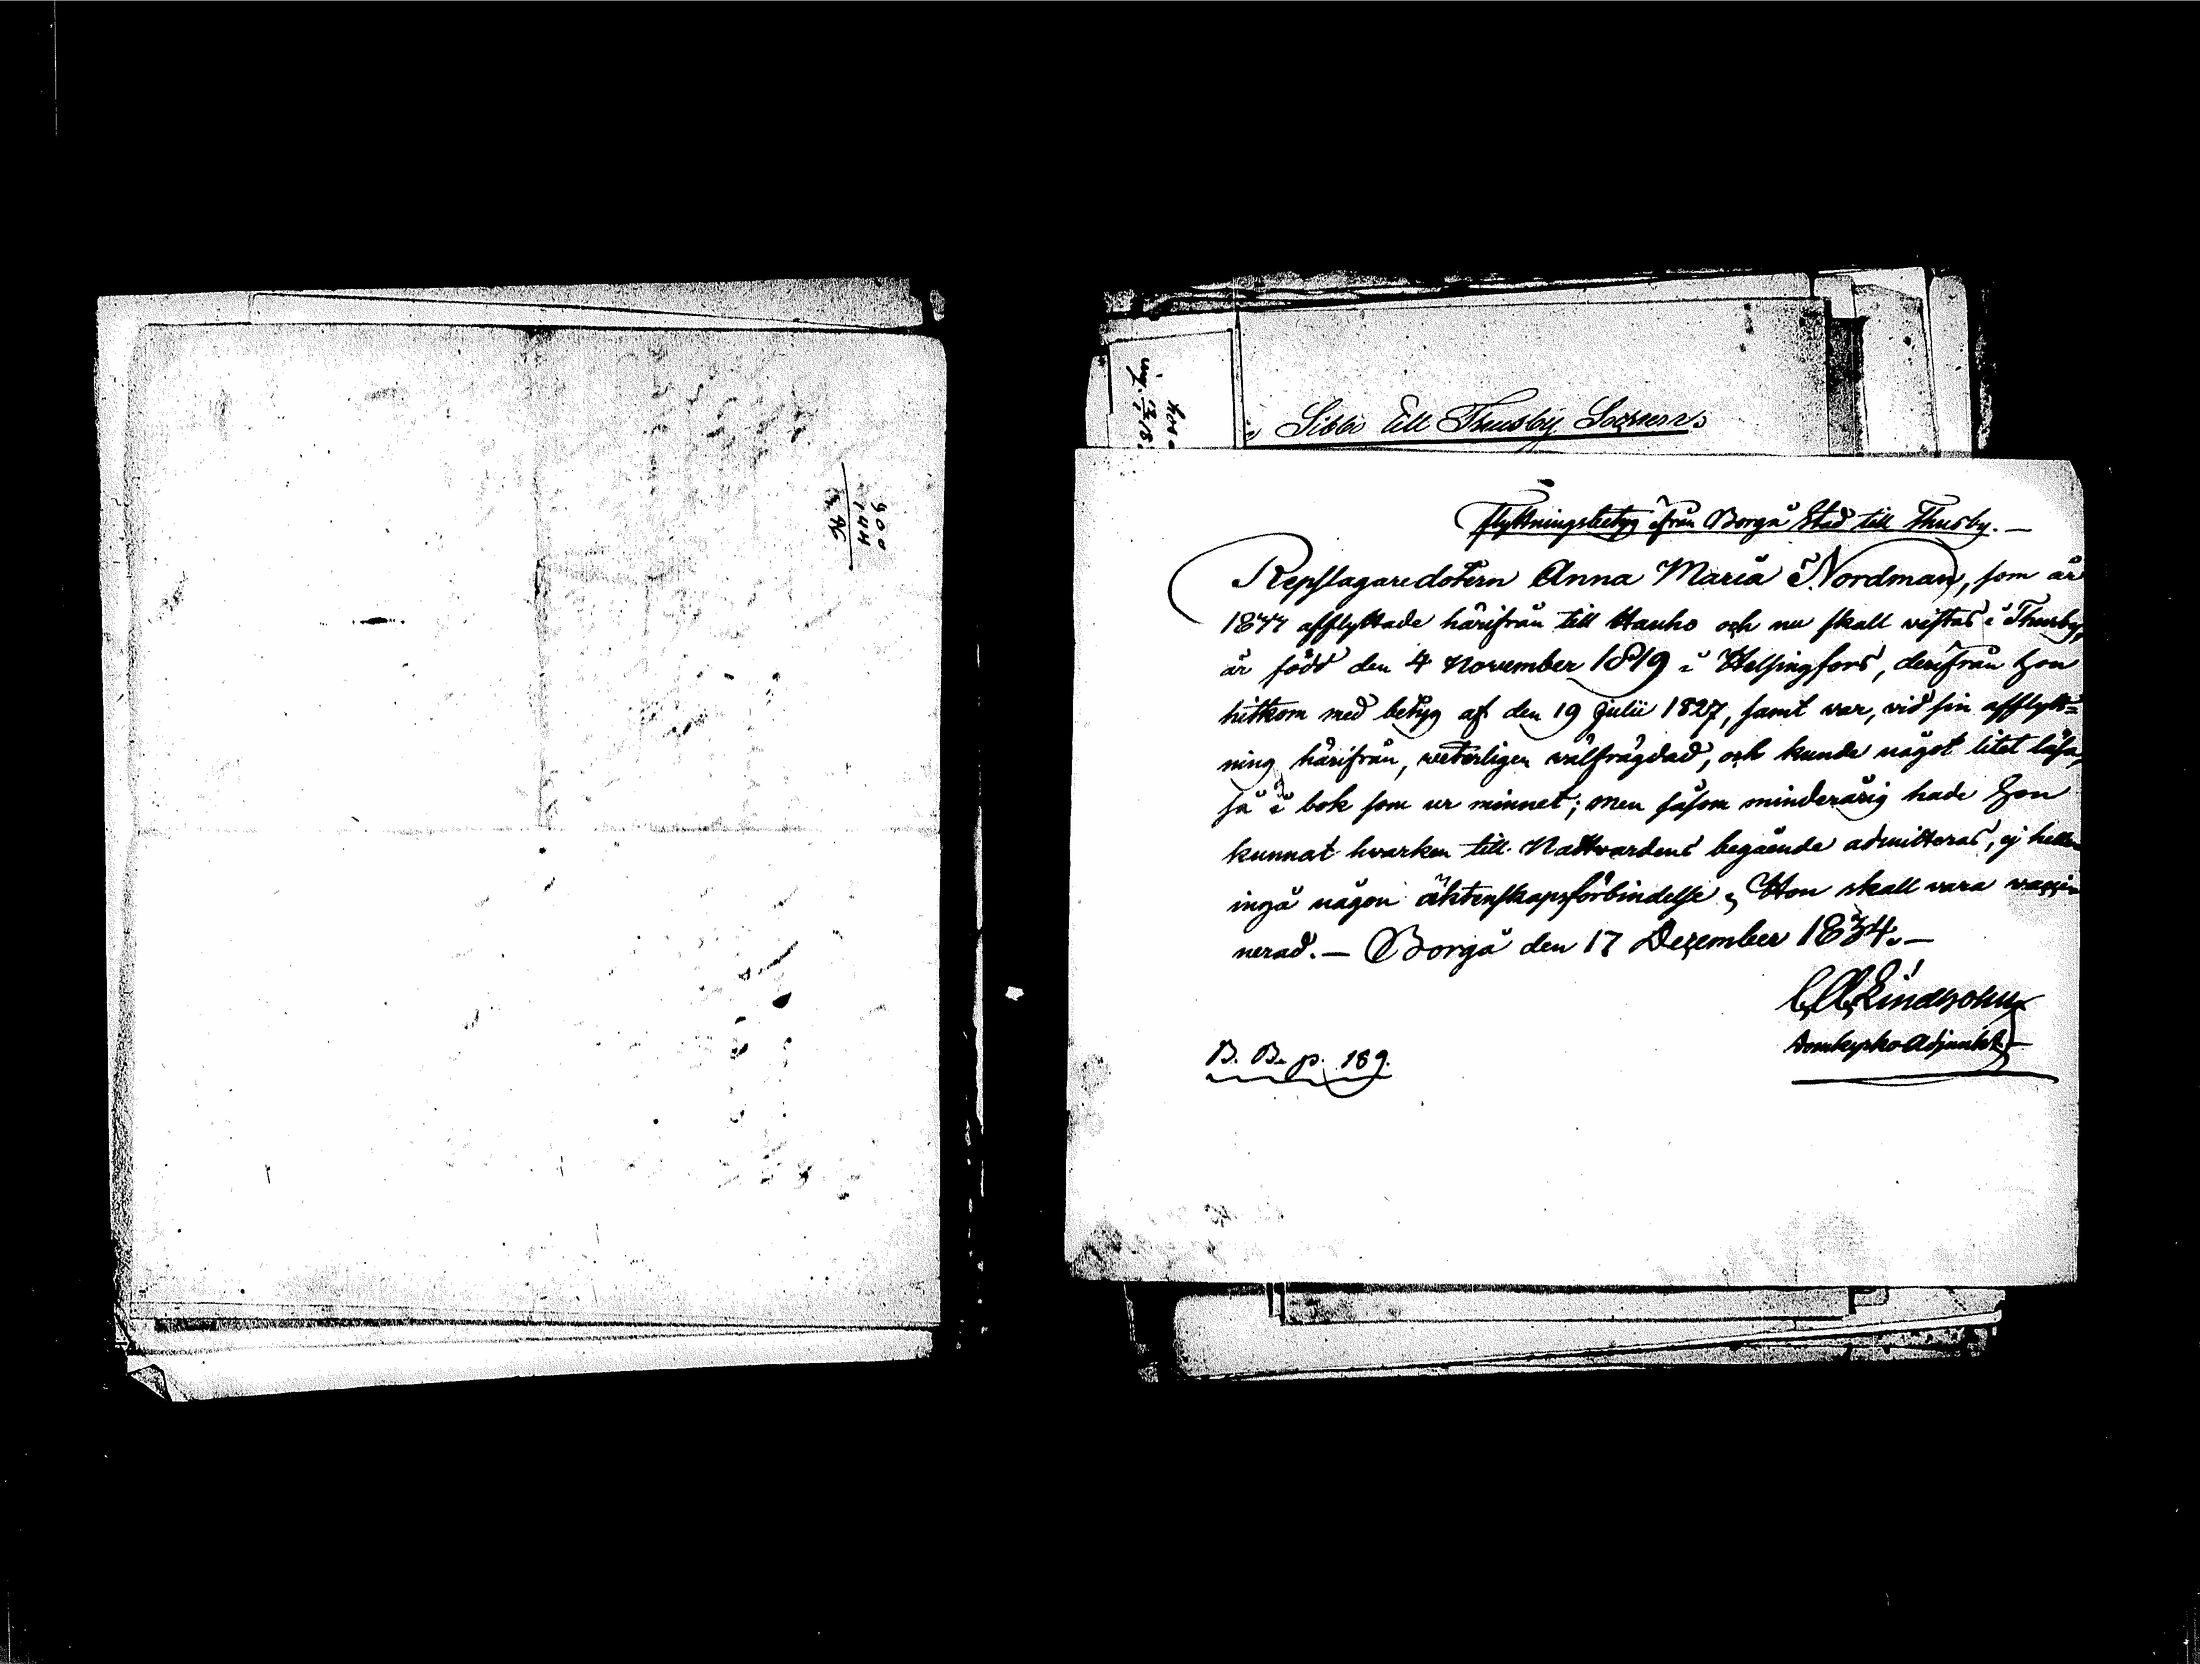 900
144
Sibbo till Thusby Socken
Flyttningsbetyg ifrån Borgå Stad till Thusby. —
Repslagaredotern Anna Maria Nordman, som år
afflyttade härifrån till Hauho och nu skall vistas i Thusby,
är född den 4 November 1819 i Helsingfors, derifrån hon
hitkom med betyg af den 19 Julii 1827, samt var, vid sin afflytt=
ning härifrån, veterligen välfrägdad, och kunde något litet läsa,
så i bok som ur minnet; men såsom minderårig hade hon
kunnat hvarken till Nattvardens begående admitteras, ej heller
ingå någon äktenskapsförbindelse. Hon skall vara vaccin
nerad. — Borgå den 17 December 1834. —
Lindhohm
Domkyrko Adjunkt
B. B. p. 189.